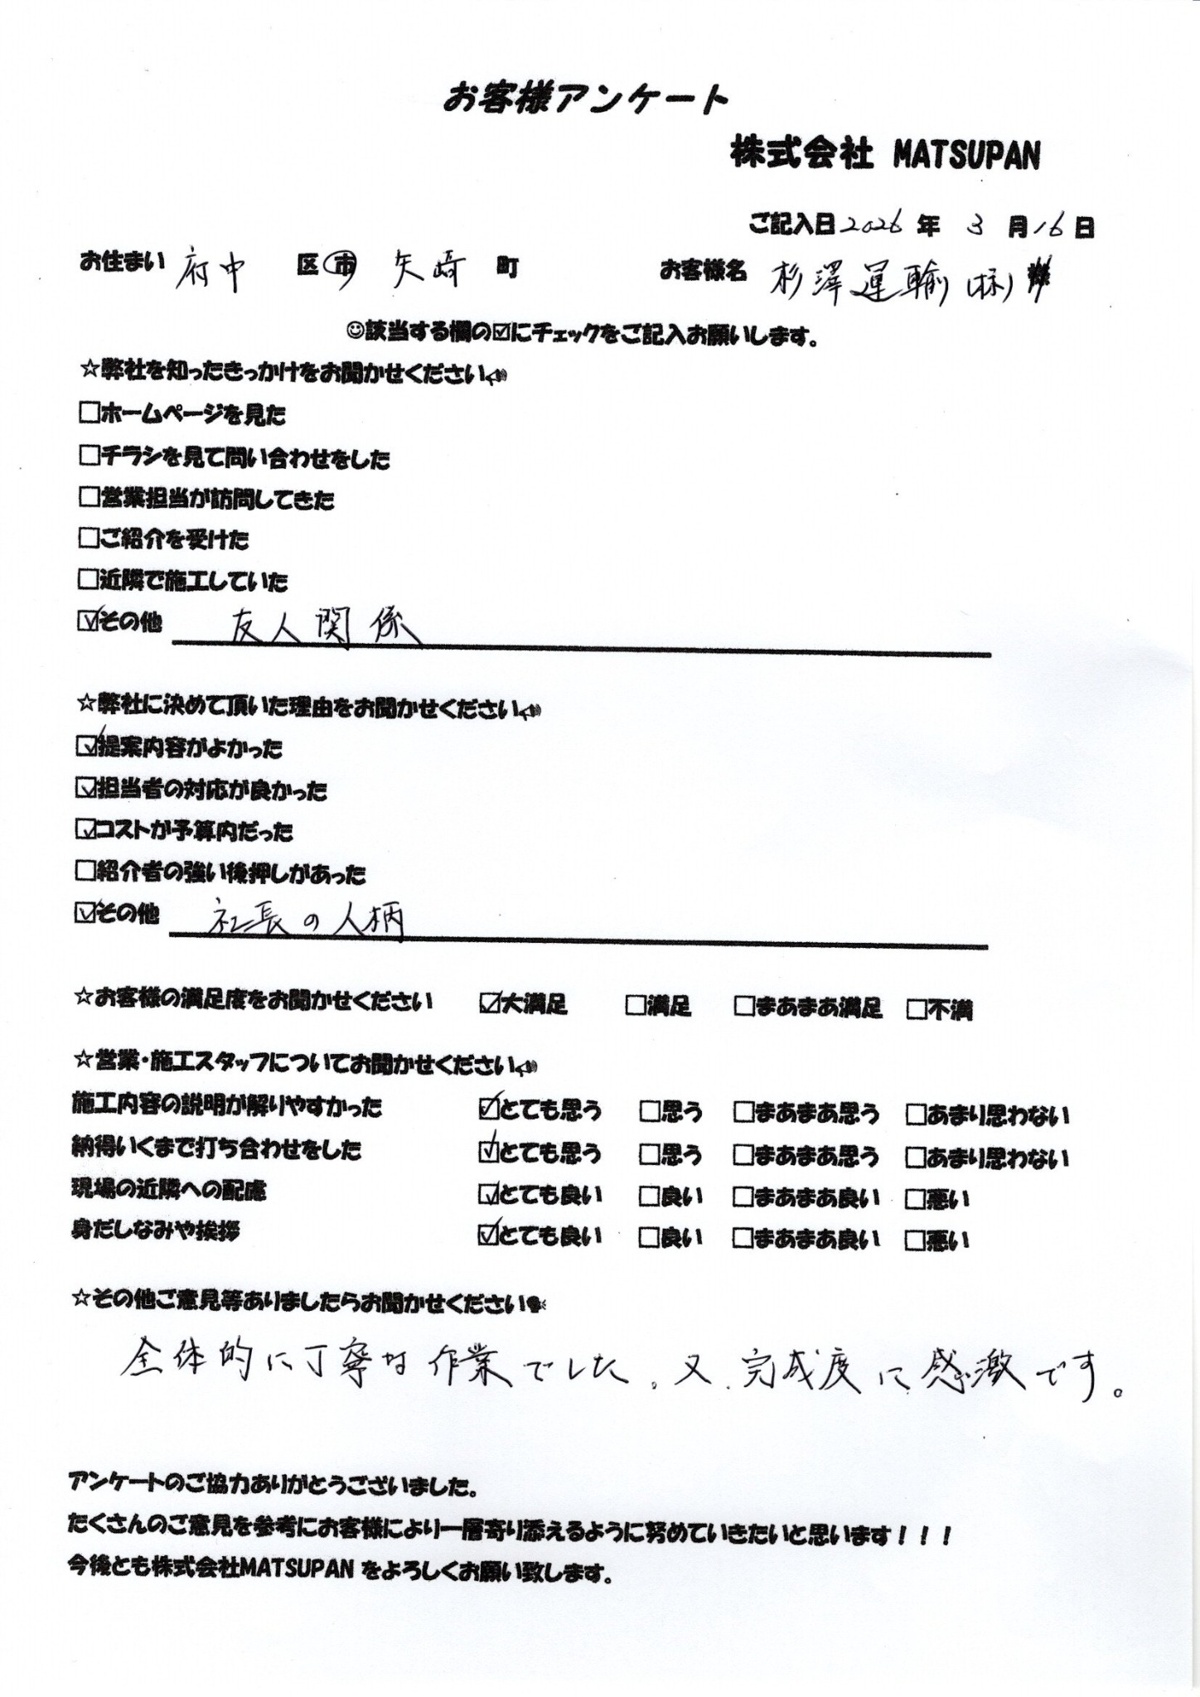 お客様アンケート
株式会社 MATSUPAN
ご記入日 2026 年 3 月 16 日
お住まい 府中 区 市 矢崎 町 お客様名 杉澤運輸(株)
☺該当する欄の☑にチェックをご記入お願いします。
☆弊社を知ったきっかけをお聞かせください
□ホームページを見た
□チラシを見て問い合わせをした
□営業担当が訪問してきた
□ご紹介を受けた
□近隣で施工していた
☑その他 友人関係
☆弊社に決めて頂いた理由をお聞かせください
☑提案内容がよかった
☑担当者の対応が良かった
☑コストが予算内だった
□紹介者の強い後押しがあった
☑その他 社長の人柄
☆お客様の満足度をお聞かせください ☑大満足 □満足 □まあまあ満足 □不満
☆営業・施工スタッフについてお聞かせください
施工内容の説明が解りやすかった ☑とても思う □思う □まあまあ思う □あまり思わない
納得いくまで打ち合わせをした ☑とても思う □思う □まあまあ思う □あまり思わない
現場の近隣への配慮 ☑とても良い □良い □まあまあ良い □悪い
身だしなみや挨拶 ☑とても良い □良い □まあまあ良い □悪い
☆その他ご意見等ありましたらお聞かせください
全体的に丁寧な作業でした。又、完成度に感激です。
アンケートのご協力ありがとうございました。
たくさんのご意見を参考にお客様により一層寄り添えるように努めていきたいと思います！！！
今後とも株式会社MATSUPAN をよろしくお願い致します。